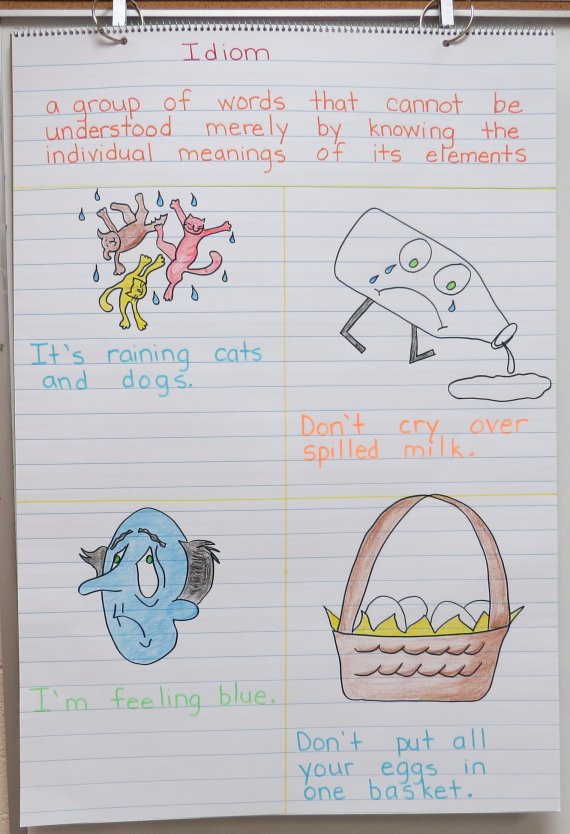 Idiom
a group of words that cannot be
understood merely by knowing the
individual meanings of its elements
It's raining cats
and dogs.
Don't cry over
spilled milk.
I'm feeling blue.
Don't put all
your eggs in
one basket.